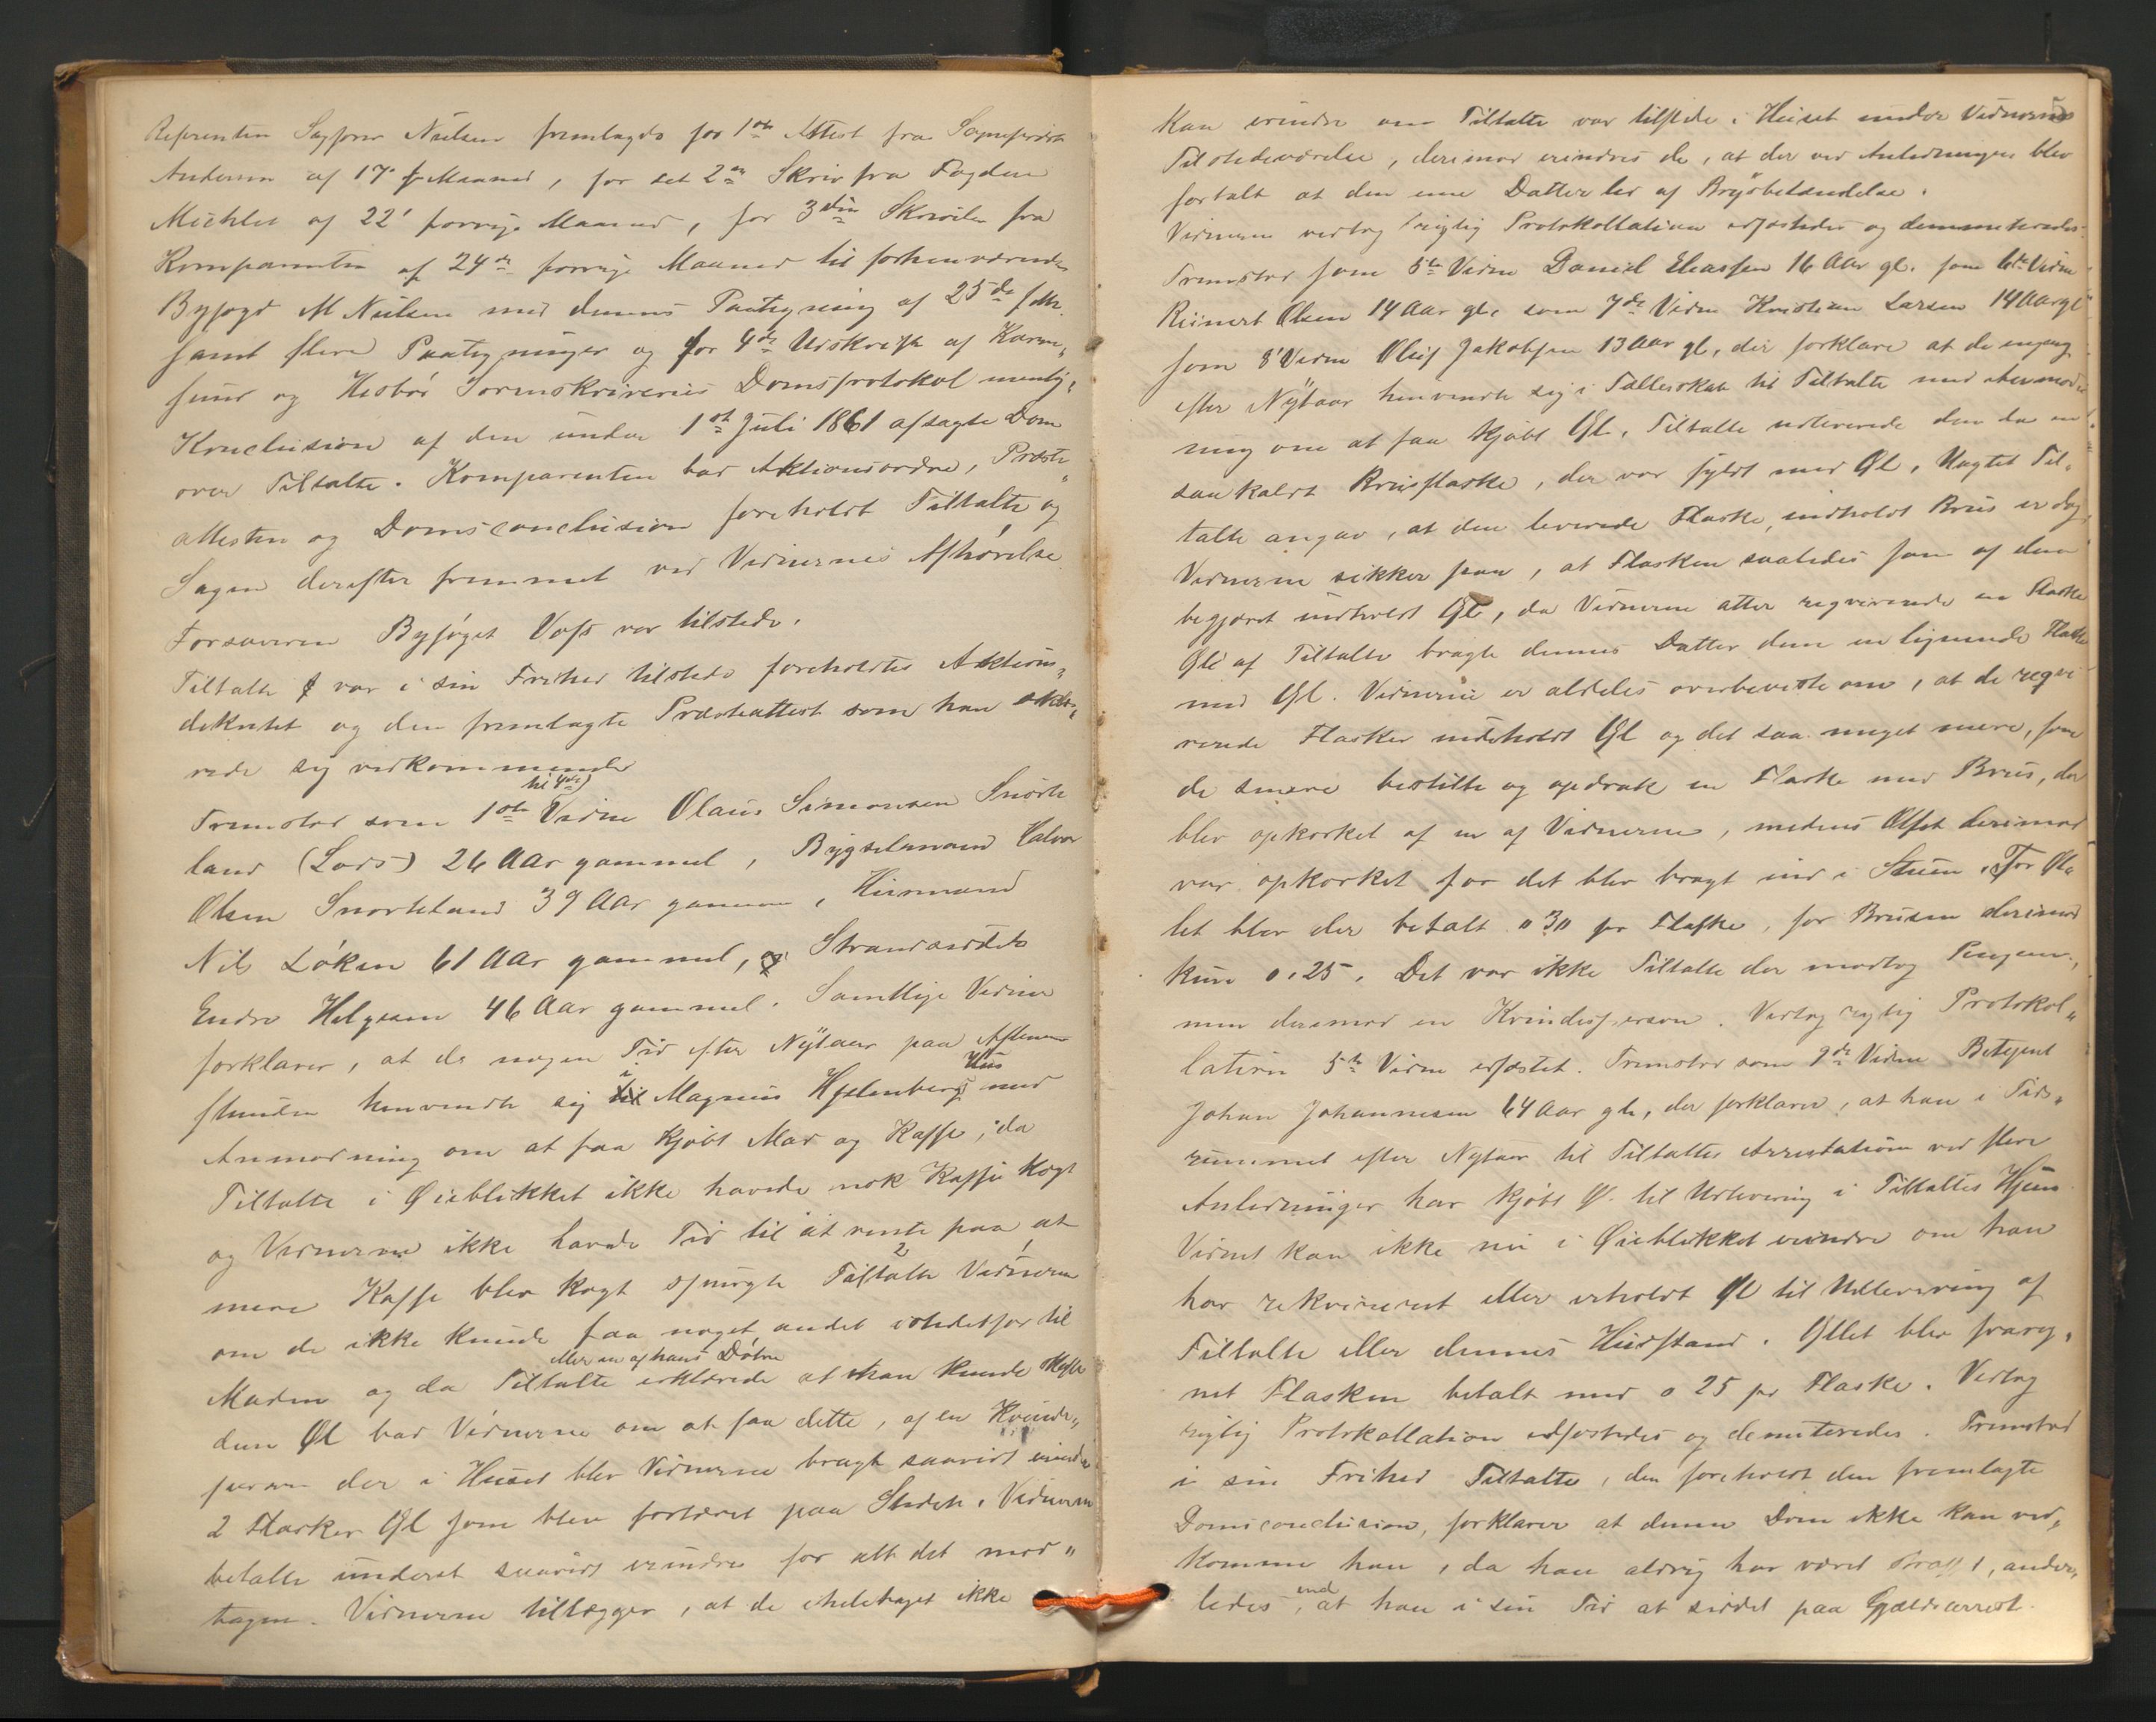 Referenten Sagfører Nielsen fremlagde for 1ste Attest fra Sognepræst
Andersen af 17' f Maaned, for det 2det Skriv fra Fogden
Michlet af 22' forrige Maaned, for 3die Skrivelse fra
Komparenten af 24de forrige Maaned til forhenværende
Byfogd M Nielsen med dennes Paategning af 25de f M.
samt flere Paategninger og for 4de Udskrift af Karm„
sund og Hesbø Sorenskriveries Domsprotokol nemlig„
Konclusion af den under 1ste Juli 1861 afsagte Dom
over Tiltalte. Komparenten bad Aktionsordre, Præste„
attesten og Domsconclusion foreholdt Tiltalte og
Sagen derefter fremmet ved Vidnernes Afhørelse.
Forsvareren Byfoget Voss var tilstede.
Tiltalte var i sin Frihed tilstede foreholdtes Aktions„
dekretet og den fremlagte Præsteattest som han erklæ„
rede sig vedkommende
til 4de)
Fremstod som 1ste Vidne Olaus Simonsen Snorte
land (Lods) 26 Aar gammel, Bygselmand Halvor
Olsen Snorteland 39 Aar gammel, Huusmand
Nils Løken 61 Aar gammel, og Strandsidder
Endre Helgesen 46 Aar gammel. Samtlige Vidner
forklarer, at de nogen Tid efter Nytaar paa Aftenen
Huus
stunden henvendte sig i Magnus Hjelmbergs med
Anmodning om at faa kjøbt Mad og Kaffe, da
Tiltalte i Øieblikket ikke havde nok Kaffe kogt
og Vidnerne ikke havde Tid til at vente paa, at
mere Kaffe blev kogt spurgte Tiltalte Vidnerne
om de ikke kunde faa noget andet istedetfor til
eller en af hans Døtre
Maden og da Tiltalte erklærede at han kunde skaffe
dem Øl bad Vidnerne om at faa dette, af en Kvinde„
person der i Huset blev Vidnerne bragt saavidt erindres
2 Flasker Øl som blev fortæret paa Stedet. Vidnerne
betalte underet saavidt erindres for alt det mod„
tagne. Vidnerne tillægger, at de iheletaget ikke
kan erindre om Tiltalte var tilstede i Huset under Vidnernes
Tilstedeværelse, derimod erindres de, at der ved Anledningen blev
fortalt at den ene Datter led af Brystbetændelse.
Vidnerne vedtog rigtig Protokollation edfæstedes og demmiteredes.
Fremstod som 5te Vidne Daniel Eliassen 16 Aar gl. som 6te Vidne
Reinert Olsen 14 Aar gl. som 7de Vidne Kristian Larsen 14 Aar gl
som 8' Vidne Oluf Jakobsen 13 Aar gl, der forklare at de engang
efter Nytaar henvendte sig i Fællesskab til Tiltalte med Anmod
ning om at faa kjøbt Øl. Tiltalte udleverede dem da en
saakaldt Brusflaske, der var fyldt med Øl. Uagtet Til„
talte angav, at den leverede Flaske, indholdt Brus er dog
Vidnerne sikker paa, at Flasken saaledes som af dem
begjæret indholdt Øl, da Vidnerne atter reqvirerede en Flaske
Øl af Tiltalte bragte dennes Datter dem en lignende Flaske
med Øl. Vidnerne er aldeles overbeviste om, at de reqvi
rerede Flasker indeholdt Øl og det saa meget mere, som
de senere bestilte og opdrak en Flaske med Brus, der
blev opkorket af en af Vidnerne, medens Øllet derimod
var opkorket før det blev bragt ind i Stuen. For Øl„
let blev der betalt "30" pr Flaske, for Brusen derimod
kun 0.25. Det var ikke Tiltalte der modtog Pengene,
men derimod en Kvindesperson. Vedtog rigtig Protokol„
lation 5te Vidne edfæstet. Fremstod som 9de Vidne Betjent
Johan Johannesen 64 Aar gl, der forklarer, at han i Tids„
rummet efter Nytaar til Tiltaltes Arrestation ved flere
Anledninger har kjøbt Øl til Udlevering i Tiltaltes Hjem.
Vidnet kan ikke nu i Øieblikket erindre om han
har rekvireret eller erholdt Øl til Udlevering af
Tiltalte eller dennes Husstand. Øllet blev frareg„
net Flasken betalt med 0 25 pr Flaske. Vedtog
rigtig Protokollation edfæstedes og demiteredes. Fremstod
i sin Frihed Tiltalte, den foreholdt den fremlagte
Domsconclusion, forklarer at denne Dom ikke kan ved„
komme han, da han aldrig har været straffet, ander„
end
ledes, at han i sin Tid at siddet paa Gjældsarrest.